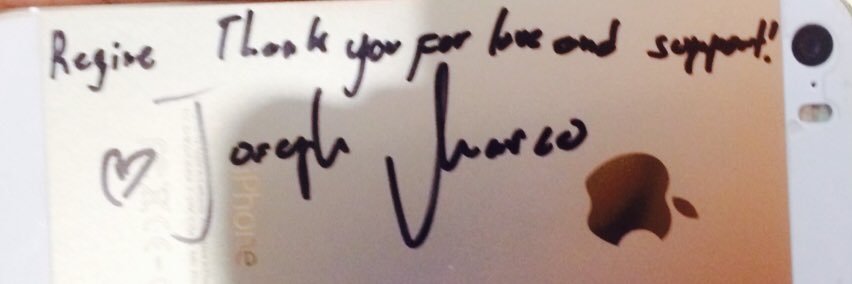 Regine Thank you for love and support!
♡ Joseph Marco
iPhone